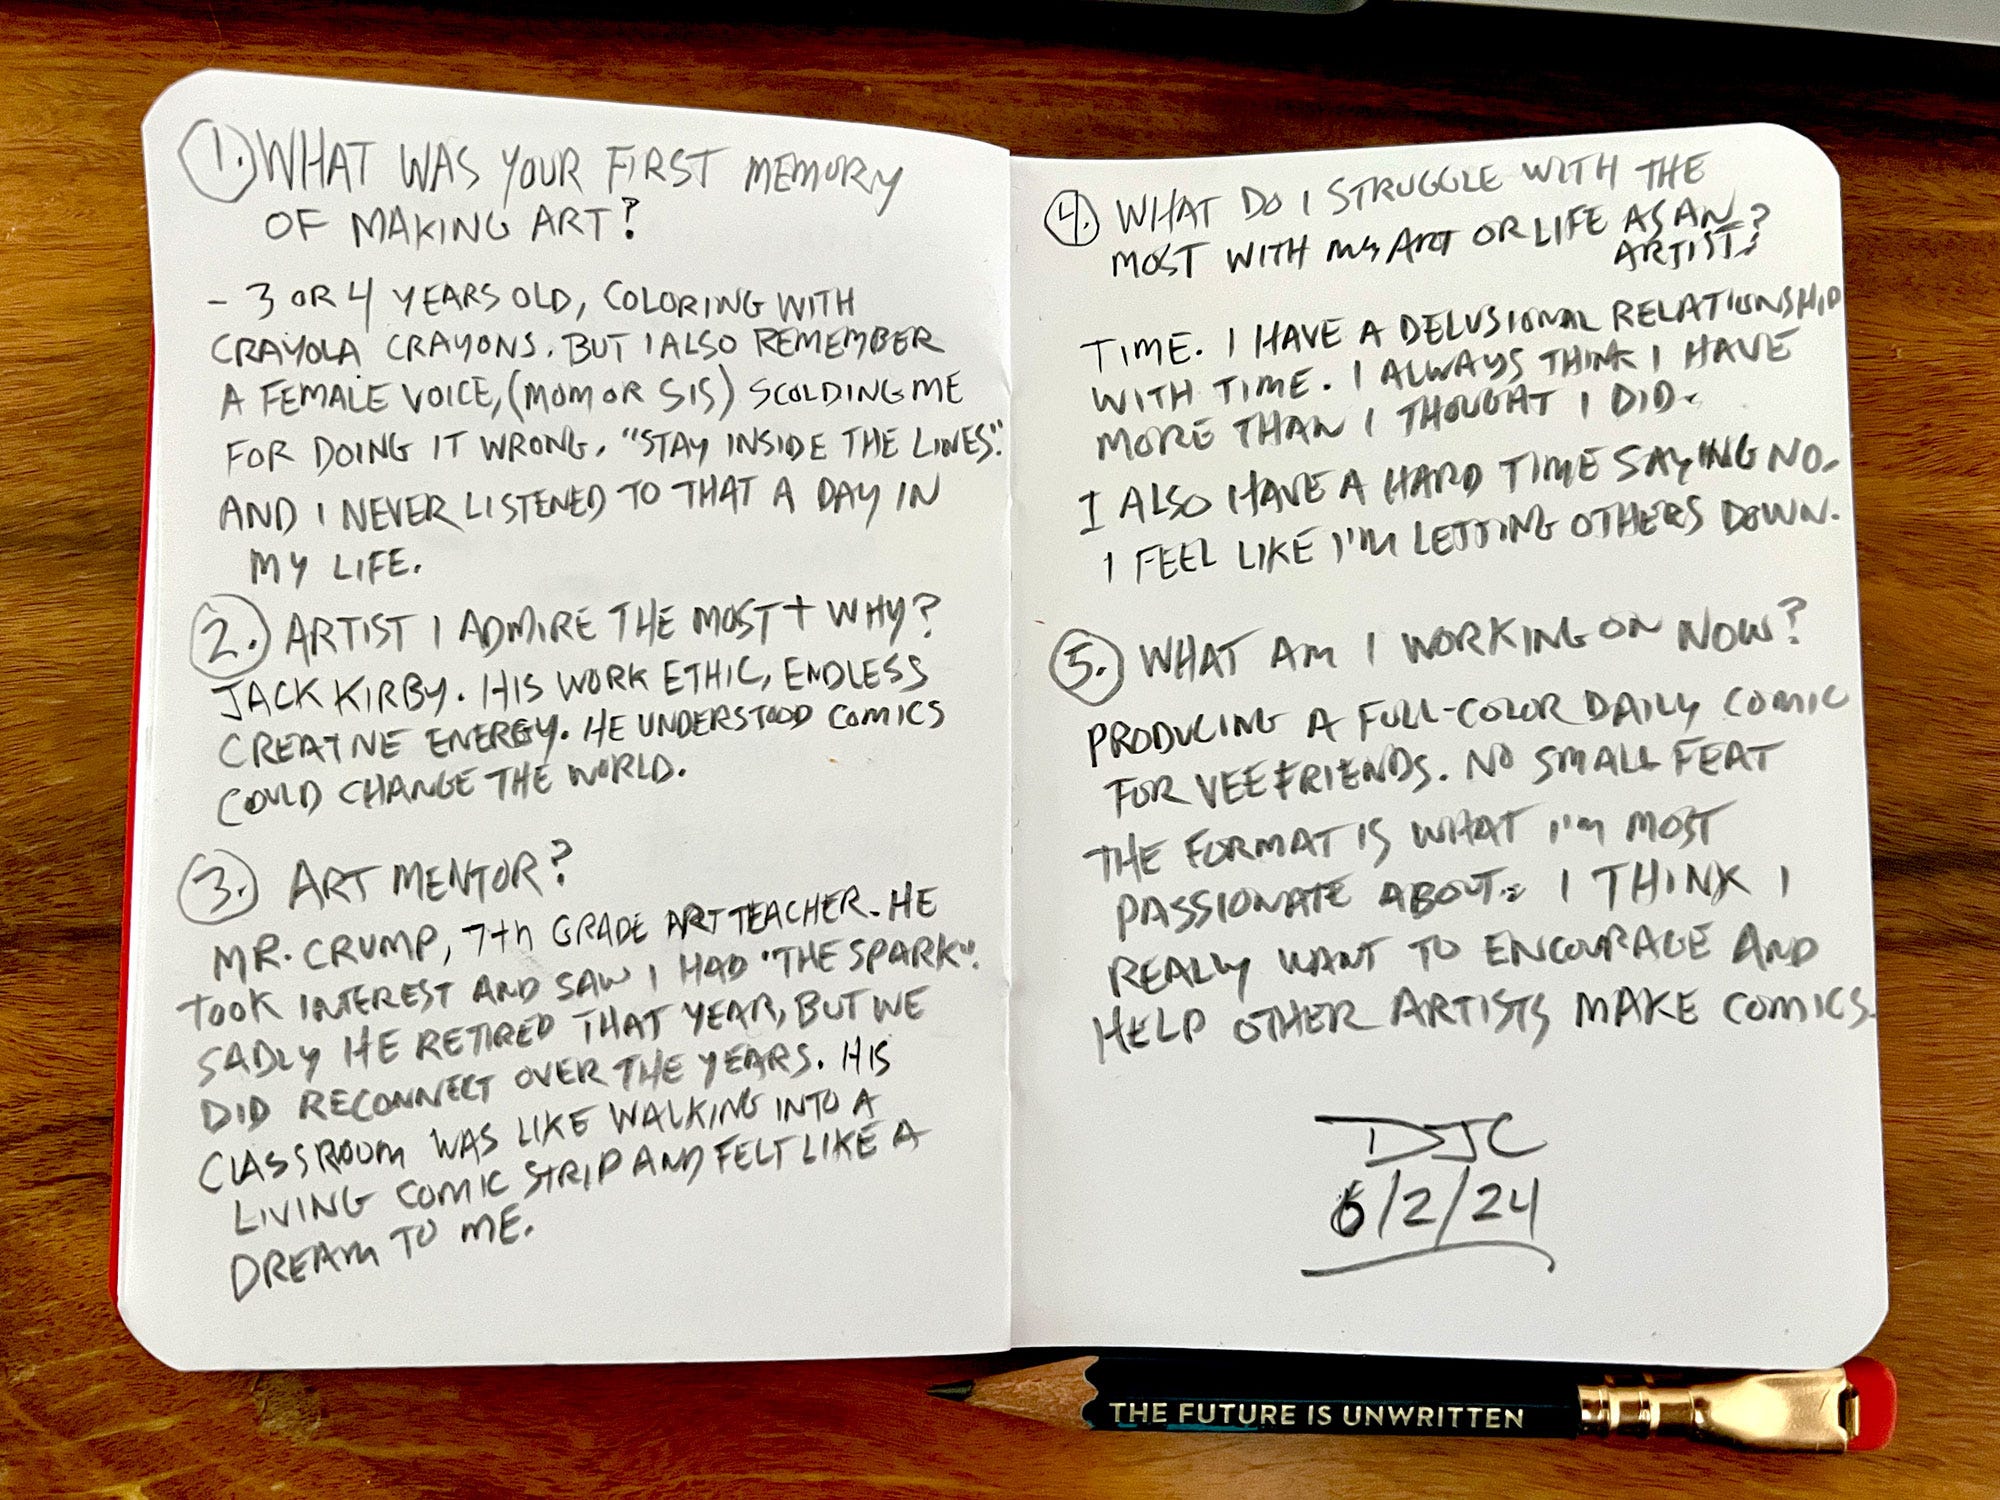 1. WHAT WAS YOUR FIRST MEMORY
OF MAKING ART?
- 3 OR 4 YEARS OLD, COLORING WITH
CRAYOLA CRAYONS. BUT I ALSO REMEMBER
A FEMALE VOICE, (MOM OR SIS) SCOLDING ME
FOR DOING IT WRONG. "STAY INSIDE THE LINES".
AND I NEVER LISTENED TO THAT A DAY IN
MY LIFE.
2. ARTIST I ADMIRE THE MOST + WHY?
JACK KIRBY. HIS WORK ETHIC, ENDLESS
CREATIVE ENERGY. HE UNDERSTOOD COMICS
COULD CHANGE THE WORLD.
3. ART MENTOR?
MR. CRUMP, 7th GRADE ART TEACHER. HE
TOOK INTEREST AND SAW I HAD "THE SPARK".
SADLY HE RETIRED THAT YEAR, BUT WE
DID RECONNECT OVER THE YEARS. HIS
CLASSROOM WAS LIKE WALKING INTO A
LIVING COMIC STRIP AND FELT LIKE A
DREAM TO ME.
4. WHAT DO I STRUGGLE WITH THE
MOST WITH MY ART OR LIFE AS AN
ARTIST?
TIME. I HAVE A DELUSIONAL RELATIONSHIP
WITH TIME. I ALWAYS THINK I HAVE
MORE THAN I THOUGHT I DID.
I ALSO HAVE A HARD TIME SAYING NO.
I FEEL LIKE I'M LETTING OTHERS DOWN.
5. WHAT AM I WORKING ON NOW?
PRODUCING A FULL-COLOR DAILY COMIC
FOR VEEFRIENDS. NO SMALL FEAT
THE FORMAT IS WHAT I'M MOST
PASSIONATE ABOUT. I THINK I
REALLY WANT TO ENCOURAGE AND
HELP OTHER ARTISTS MAKE COMICS.
DJC
6/2/24
THE FUTURE IS UNWRITTEN